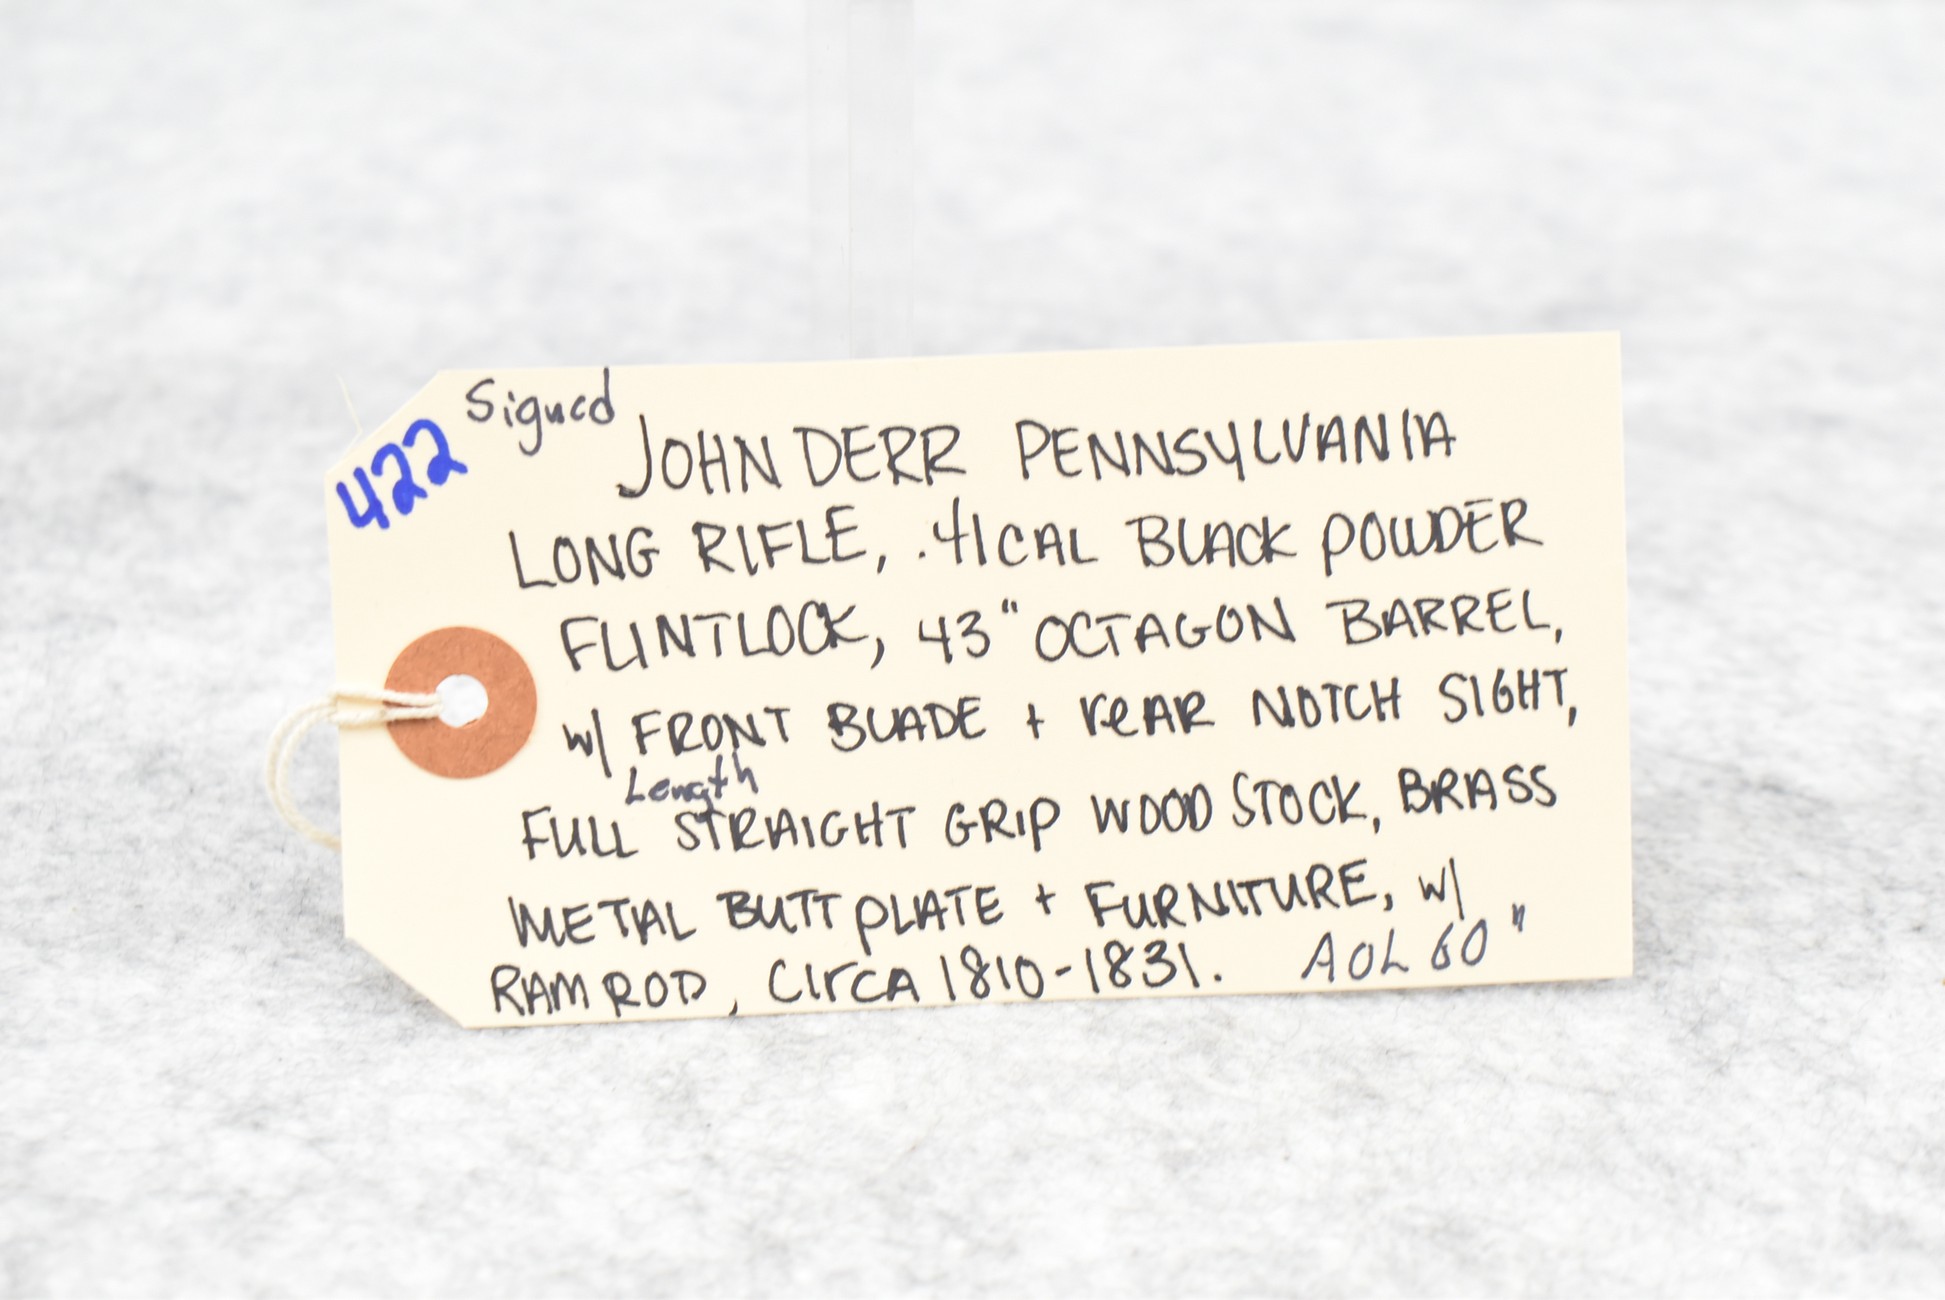 Signed
422
JOHN DERR PENNSYLVANIA
LONG RIFLE, .41CAL BLACK POWDER
FLINTLOCK, 43" OCTAGON BARREL,
w/ FRONT BLADE + reAR NOTCH SIGHT,
Length
FULL STRAIGHT GRIP WOOD STOCK, BRASS
METAL BUTT PLATE + FURNITURE, w/
RAM ROD, CIrCA 1810-1831. AOL 60"